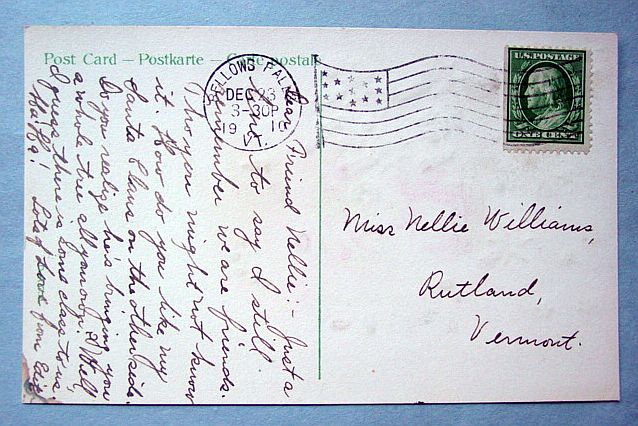 Post Card — Postkarte — Carte postale
BELLOWS FALLS
DEC 23
3-30P
19 10
VT.
U.S. POSTAGE
ONE CENT
Dear Friend Nellie:- Just a
line to say I still
remember we are friends.
Tho you might not know
it. How do you like my
Santa Claus on the other side.
Do you realize he's bringing you
a whole tree all your own. Well
I guess there is some class to us,
Lots of Love from
Miss Nellie Williams,
Rutland,
Vermont.